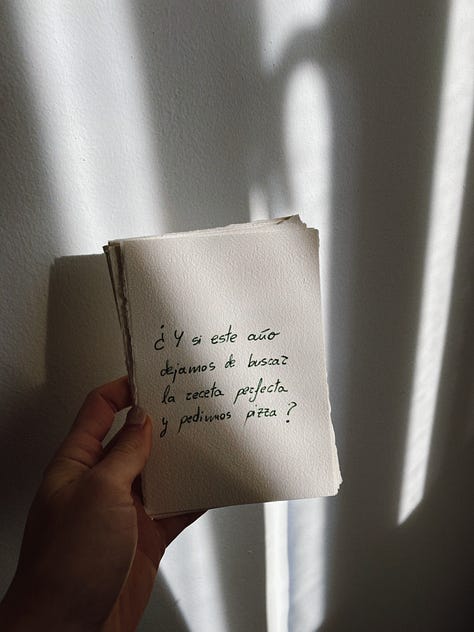 ¿Y si este año
dejamos de buscar
la receta perfecta
y pedimos pizza?